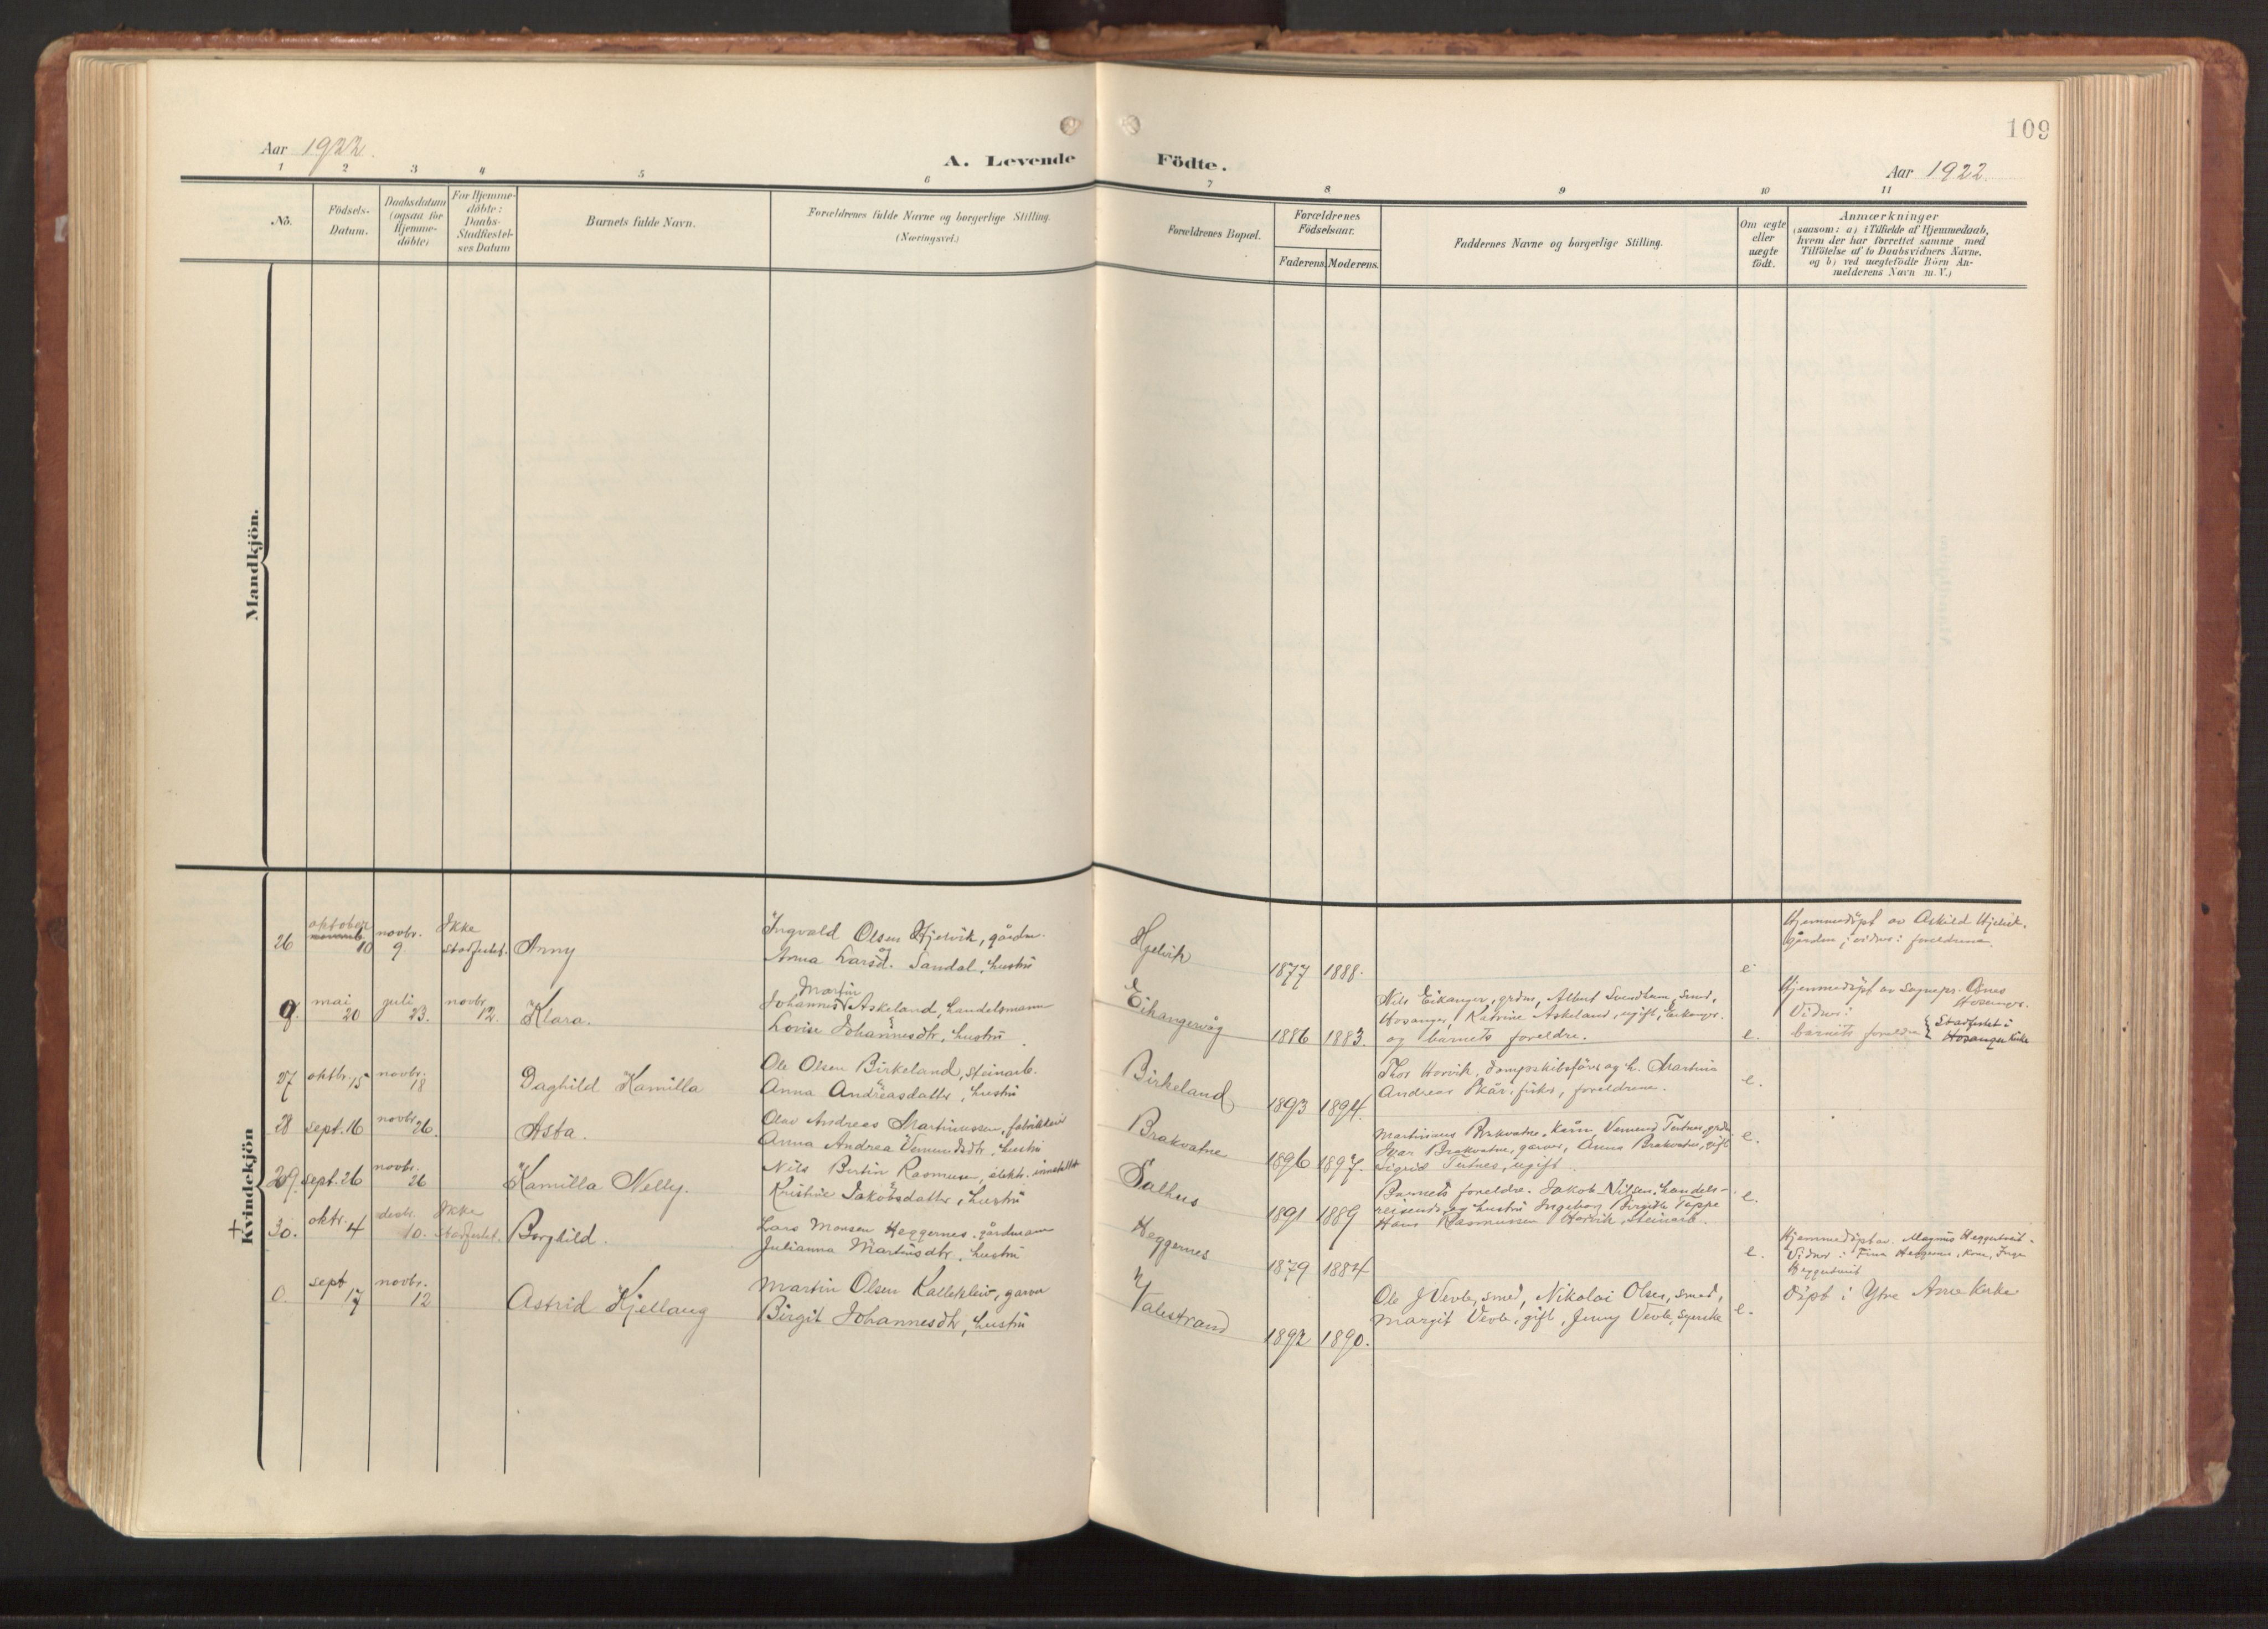 109
Aar 1922.
A. Levende Födte.
Aar 1922.
1 2 3 4 5 6 7 8 9 10 11
No.
Födsels-
Datum.
Daabsdatum
(ogsaa for
Hjemme-
döbte)
For Hjemme-
döbte:
Daabs-
Stadfæstel-
ses Datum
Barnets fulde Navn.
Forældrenes fulde Navne og borgerlige Stilling.
(Næringsvei.)
Forældrenes Bopæl.
Forældrenes
Födselsaar.
Faderens. Moderens.
Faddernes Navne og borgerlige Stilling.
Om ægte
eller
uægte
födt.
Anmærkninger
(saasom: a) i Tilfælde af Hjemmedaab,
hvem der har forrettet samme med
Tilföielse af to Daabsvidners Navne.
og b) ved uægtefödte Börn An-
melderens Navn m. V.)
Mandkjön.
Kvindekjön
26
oktober
10
novbr.
9
Ikke
stadfestet.
Anny
Ingvald Olsen Hjelvik, gårdm.
og
Anna Larsd. Sandal, hustru
Hjelvik
1877 1888.
e
Hjemmedöpt av Askild Hjelvik,
vidner: foreldrene.
0.
mai
20
juli
23.
novbr.
12.
Klara.
Martin
Johannes Askeland, handelsmann
Lovise Johannesdtr, hustru
Eikangervåg
1886 1883.
Nils Eikanger, grdm, Albert Svendheim, smed,
Hosanger, Katrine Askeland, ugift, Eikanger.
og barnets foreldre.
e.
Hjemmedöpt av Sognepr. Osnes
Hosanger.
Vidner:
barnets foreldre
Stadfestet i
Hosanger kirke
27
oktbr.
15
novbr.
18
Daghild Kamilla
Ole Olsen Birkeland, steinarb.
Anna Andreasdatter, hustru
Birkeland
1893 1894.
Thor Horvik, dampskibsförer og h. Martina
Andreas Skår, fisker, foreldrene.
e.
28
sept. 16
novbr.
26.
Asta.
Olav Andreas Martinussen,
Anna Andrea Vemundsdtr, hustru
Brakvatne
1896 1897.
Martinus Brakvatne, Vemund Tertnes, grdm
Ivar Brakvatne, garver, Anna Brakvatne, gift
Sigrid Tertnes, ugift.
e.
29.
sept. 26
novbr.
26
Kamilla Nelly.
Nils Bertin Rasmussen, elektr.
Kristine Jakobsdatter, hustru
Salhus
1891 1889
Barnets foreldre. Jakob Nilsen, handels-
reisende og hustru Ingeborg Birgitte Teppe
Hans Rasmussen Horvik, steinarb.
e.
+
30.
oktr.
4
desbr.
10.
Ikke
stadfestet.
Borghild.
Lars Monsen Heggernes, gårdmann
Julianna Martinsdtr, hustru
Heggernes
1879 1884
e.
Hjemmedöpt av. Magnus Heggertveit.
Vidner: Fina Heggernes, kone, Inga
Heggertveit
0.
sept
17
novbr.
12
Astrid Kjellaug
Martin Olsen Kalleklev, garver
Birgit Johannesdtr, hustru
Valestrand
1892 1890.
Ole J Vevle, smed, Nikolai Olsen, smed,
Margit Vevle, gift, Jenny Vevle,
e.
Döpt i Ytre Arne kirke